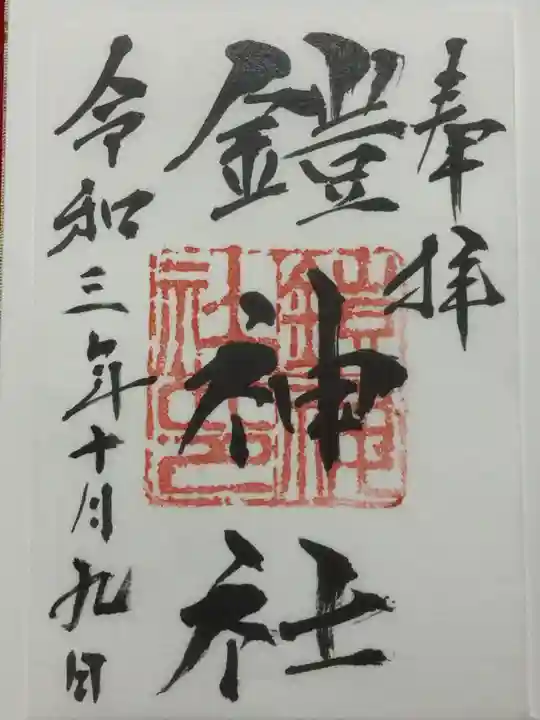 奉拝
鎧神社
鎧神社之印
令和三年十月九日